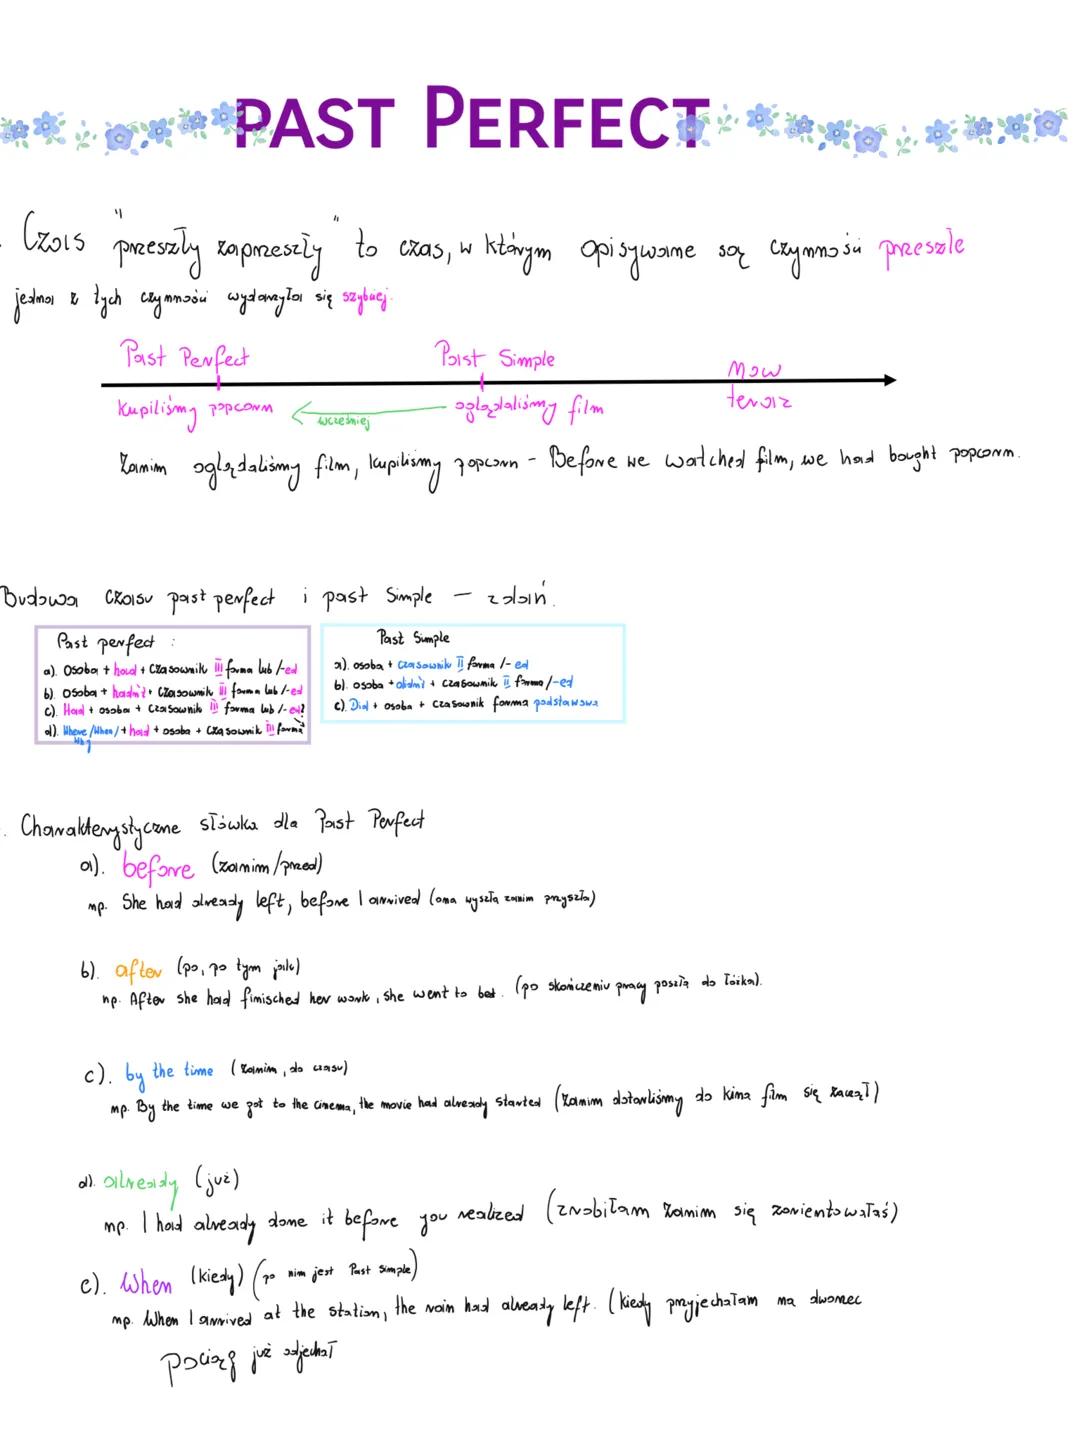 PAST PERFECT
Czas "przeszły zaprzeszły" to czas, w którym opisywane są czynności przeszłe
jedna z tych czynności wydarzyła się szybciej.
Past Perfect Past Simple Now
kupiliśmy popcorn wcześniej oglądaliśmy film teraz
Zanim oglądaliśmy film, kupiliśmy popcorn - Before we watched film, we had bought popcorn.
Budowa czasu past perfect i past Simple - zdań.
Past perfect :
a). Osoba + had + czasownik III forma lub /-ed
b). Osoba + hadn't + czasownik III forma lub /-ed
c). Had + osoba + czasownik III forma lub /-ed?
d). Where/When/Why + had + osoba + czasownik III forma?
Past Simple
a). osoba + czasownik II forma /-ed
b). osoba + didn't + czasownik II forma /-ed
c). Did + osoba + czasownik forma podstawowa
Charakterystyczne słówka dla Past Perfect
a). before (zanim/przed)
np. She had already left, before I arrived (ona wyszła zanim przyszła)
b). after (po, po tym jak)
np. After she had finisched her work, she went to bet. (po skończeniu pracy poszła do łóżka).
c). by the time (zanim, do czasu)
np. By the time we got to the cinema, the movie had already started (Zanim dotarliśmy do kina film się zaczął)
d). already (już)
np. I had already done it before you realized (zrobiłam zanim się zorientowałaś)
e). When (kiedy) (po nim jest Past Simple)
np. When I arrived at the station, the rain had already left. (kiedy przyjechałam na dworzec
pociąg już odjechał